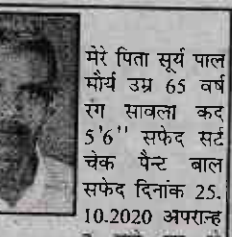 मेरे पिता सूर्य पाल
मौर्य उम्र 65 वर्ष
रंग सावला कद
5'6'' सफेद सर्ट
चेक पैन्ट बाल
सफेद दिनांक 25.
10.2020 अपरान्ह